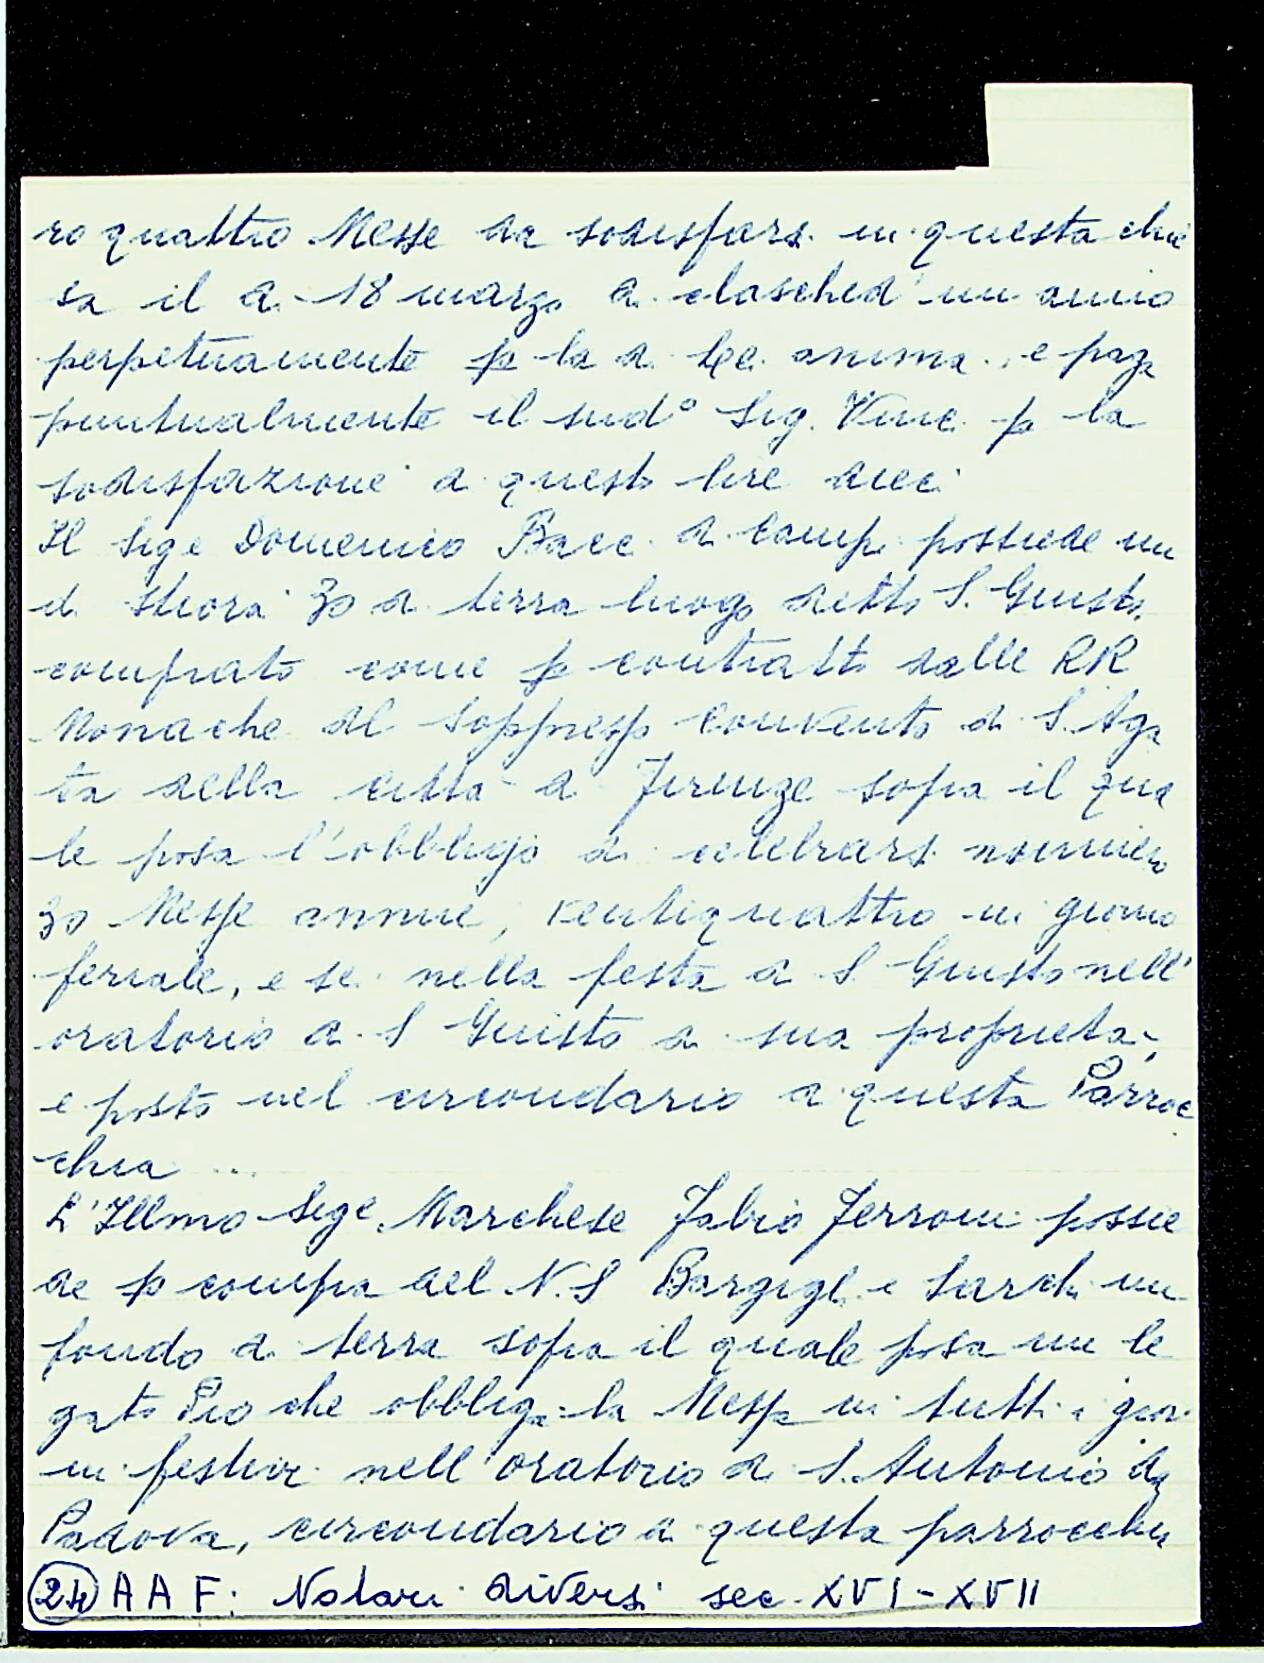 ro quattro Messe da sodisfarsi in questa chie
sa il dì 18 marzo di ciasched'un anno
perpetuamente p la di Lei anima, e paga
puntualmente il sudº Sig. Vinc. p la
sodisfazione di questo lire dieci
Il Sige Domenico Bacc. di Campi possiede un
di stiora 30 di terra luogo detto S. Giusto
comprato come p contratto dalle RR
Monache del Soppresso Convento di S. Aga
ta della città di Firenze sopra il qua
le posa l'obbligo di celebrarsi nommero
30 Messe annue, ventiquattro in giorno
feriale, e sei nella festa di S Giusto nell'
oratorio di S Giusto di sua proprietà,
e posto nel circondario di questa Parroc
chia ...
L'Illmo Sige Marchese Fabio Ferroni possie
de p compra del N.S Bargigli e Sarchi un
fondo di terra sopra il quale posa un le
gato Pio che obbliga la Messa in tutti i gior
ni festivi nell'oratorio di S. Antonio da
Padova, circondario di questa parrocchia
24 AAF: Notari diversi sec. XVI-XVII